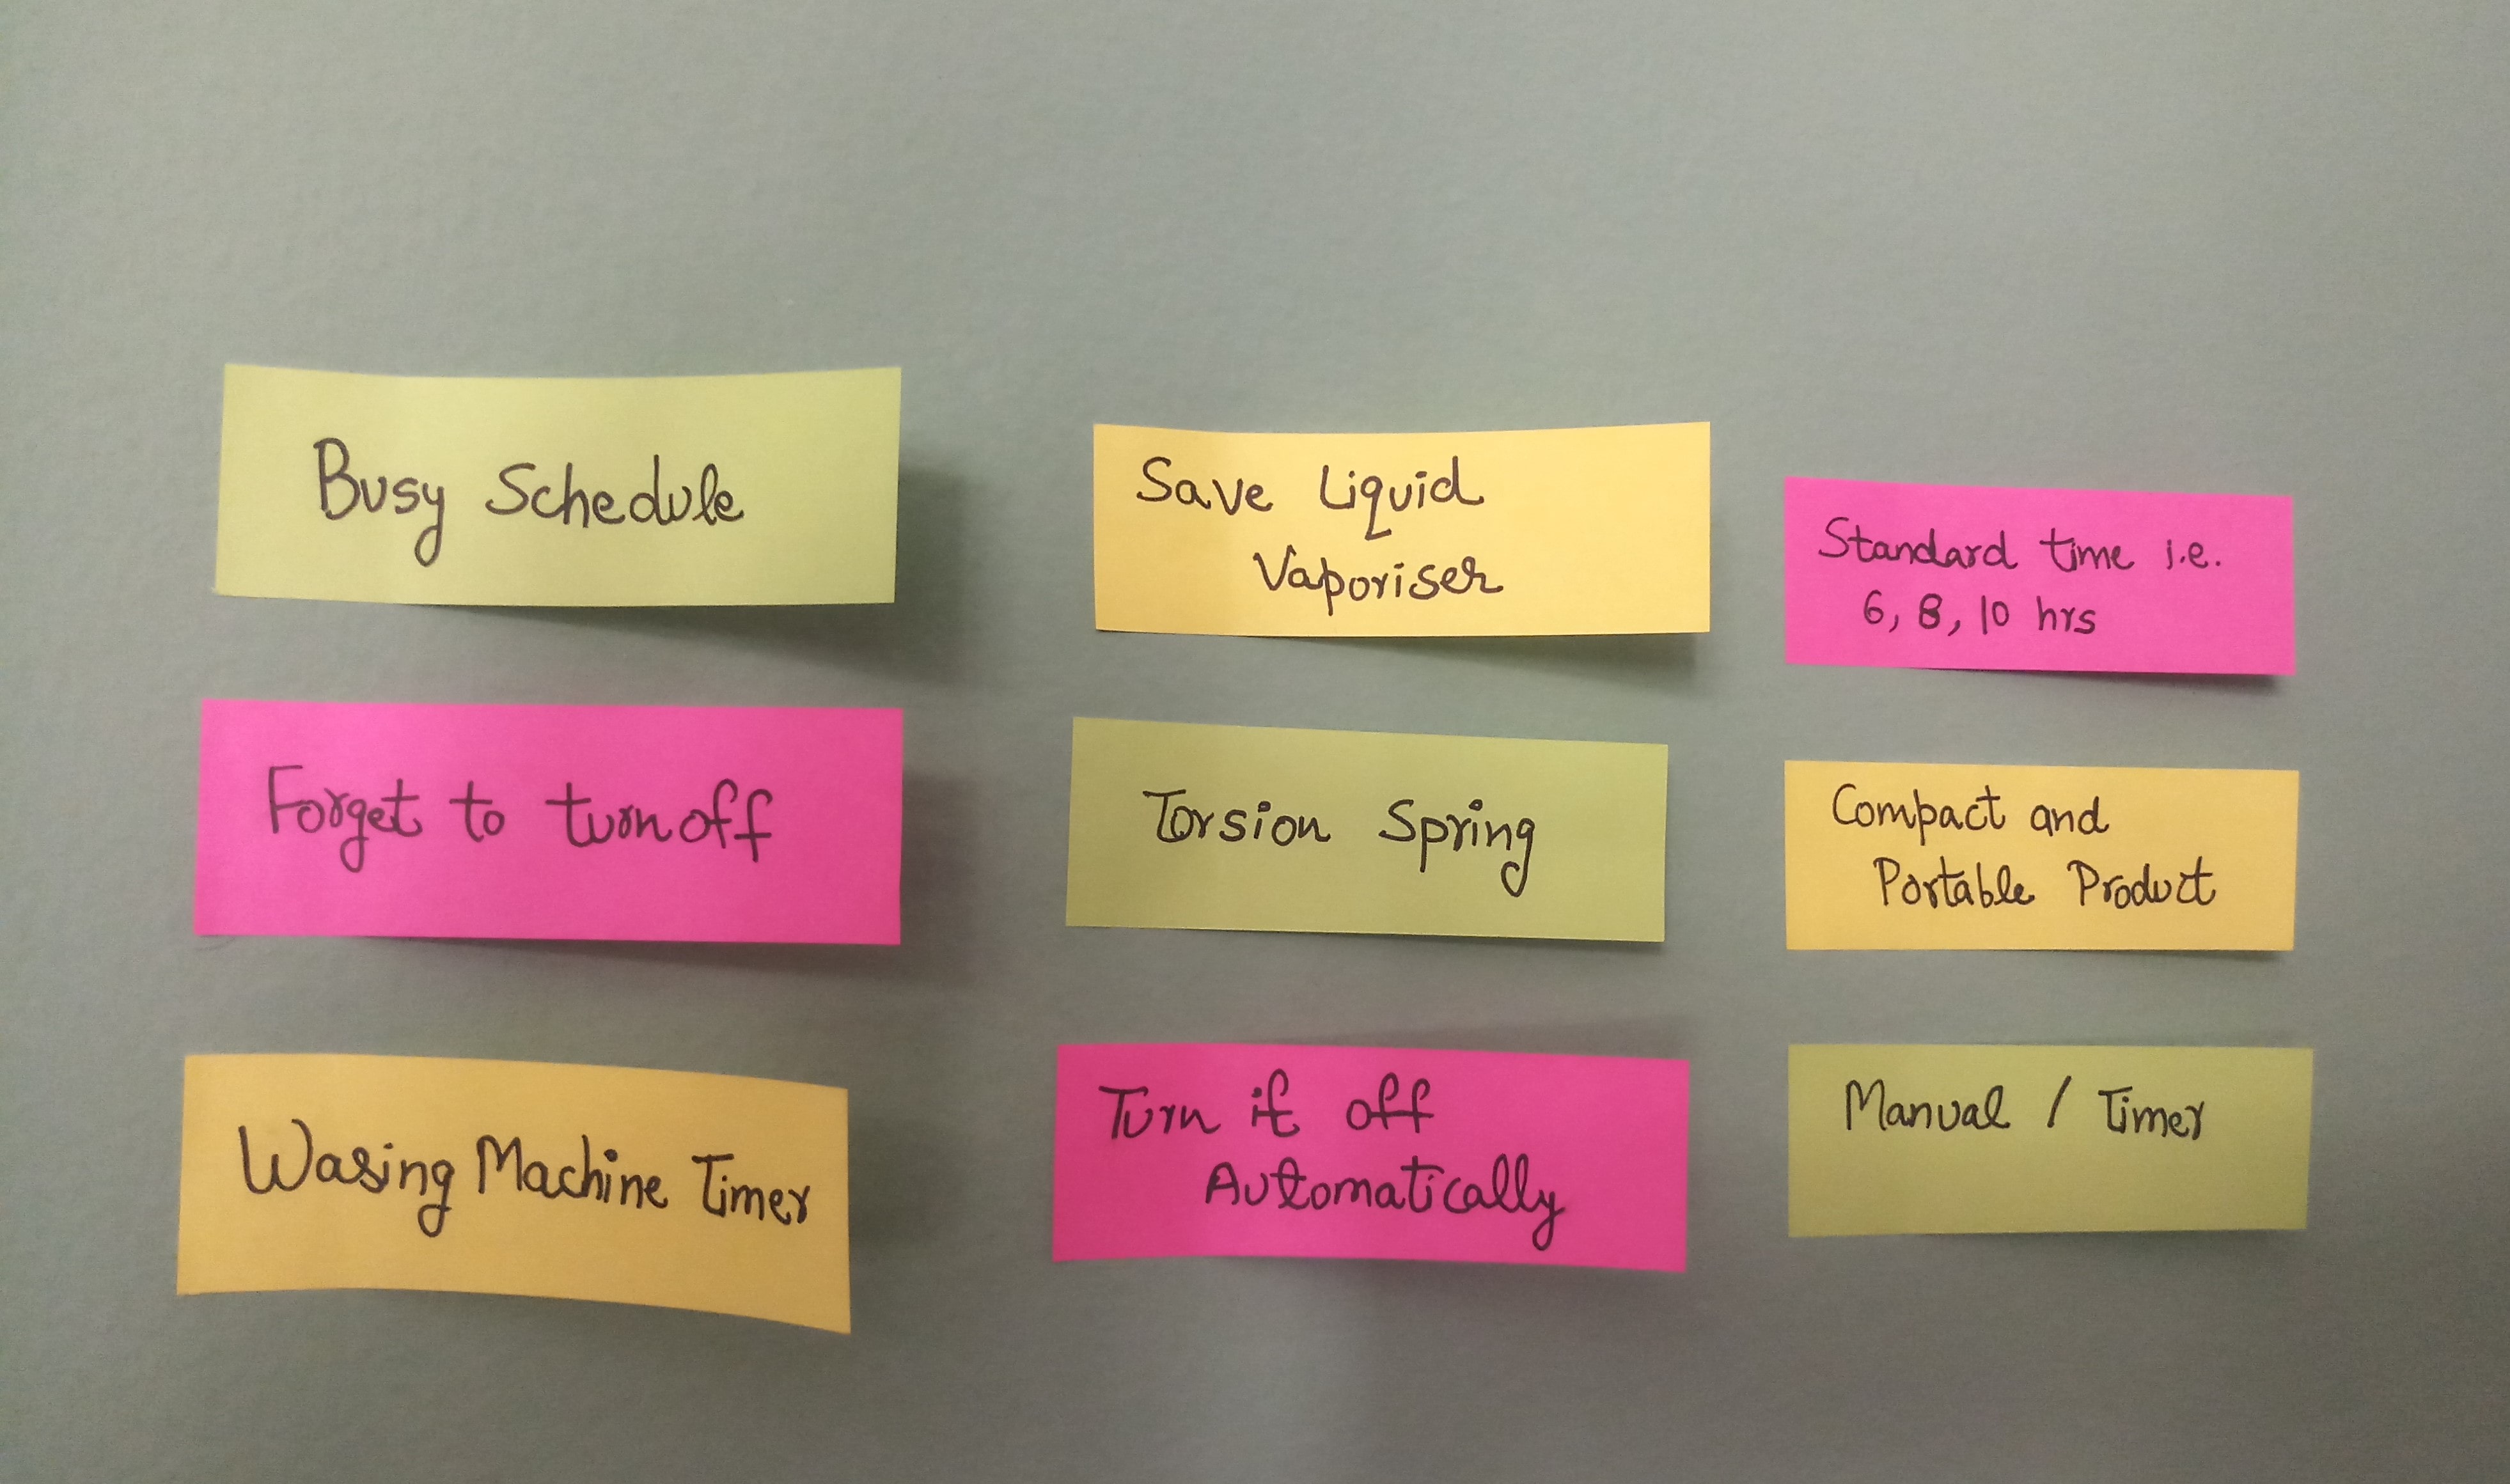 Busy Schedule
Forget to turn off
Wasing Machine Timer
Save Liquid
Vaporiser
Torsion Spring
Turn it off
Automatically
Standard time i.e.
6, 8, 10 hrs
Compact and
Portable Product
Manual / Timer